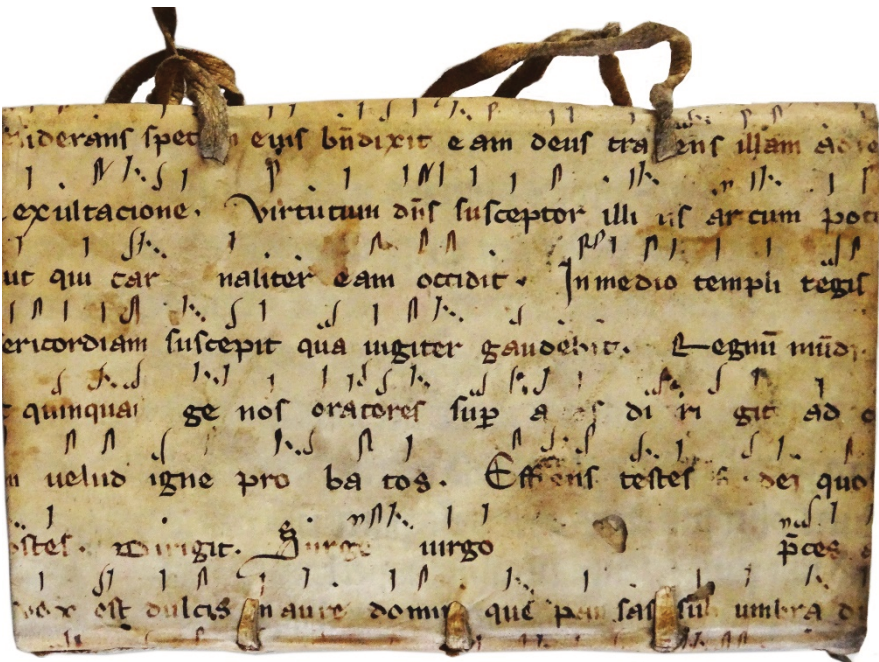 siderans spec eius bn̄dixit eam deus tra ens illam
exultacione. Virtutum dn̄s susceptor illi us arcum pot
ut qui car naliter eam occidit. In medio templi regis
ericordiam suscepit qua iugiter gaudebit. Regnū mūdi
quinquai ge nos oratores sup̄ a di ri git ad
uelud igne pro ba tos. testes dei quo
ostes. Dirigit. Surge uirgo p̄ces
uox est dulcis in aure domini que pau sas sub umbra di